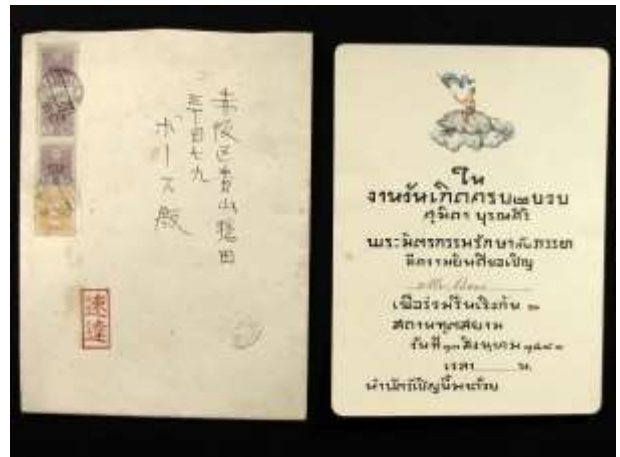 赤坂区青山穏田
三丁目七九
ボース殿
速達
ใน
งานวันเกิดครบ ๒ ขวบ
สุมิตร บุรณศิริ
พระมิตรกรรมรักษาและภรรยา
มีความยินดีขอเชิญ
Mr. Bose
เพื่อร่วมรื่นเริงกัน ณ
สถานทูตสยาม
วันที่ ๑๓ สิงหาคม
เวลา น.
นำบัตร์เชิญนี้มาด้วย